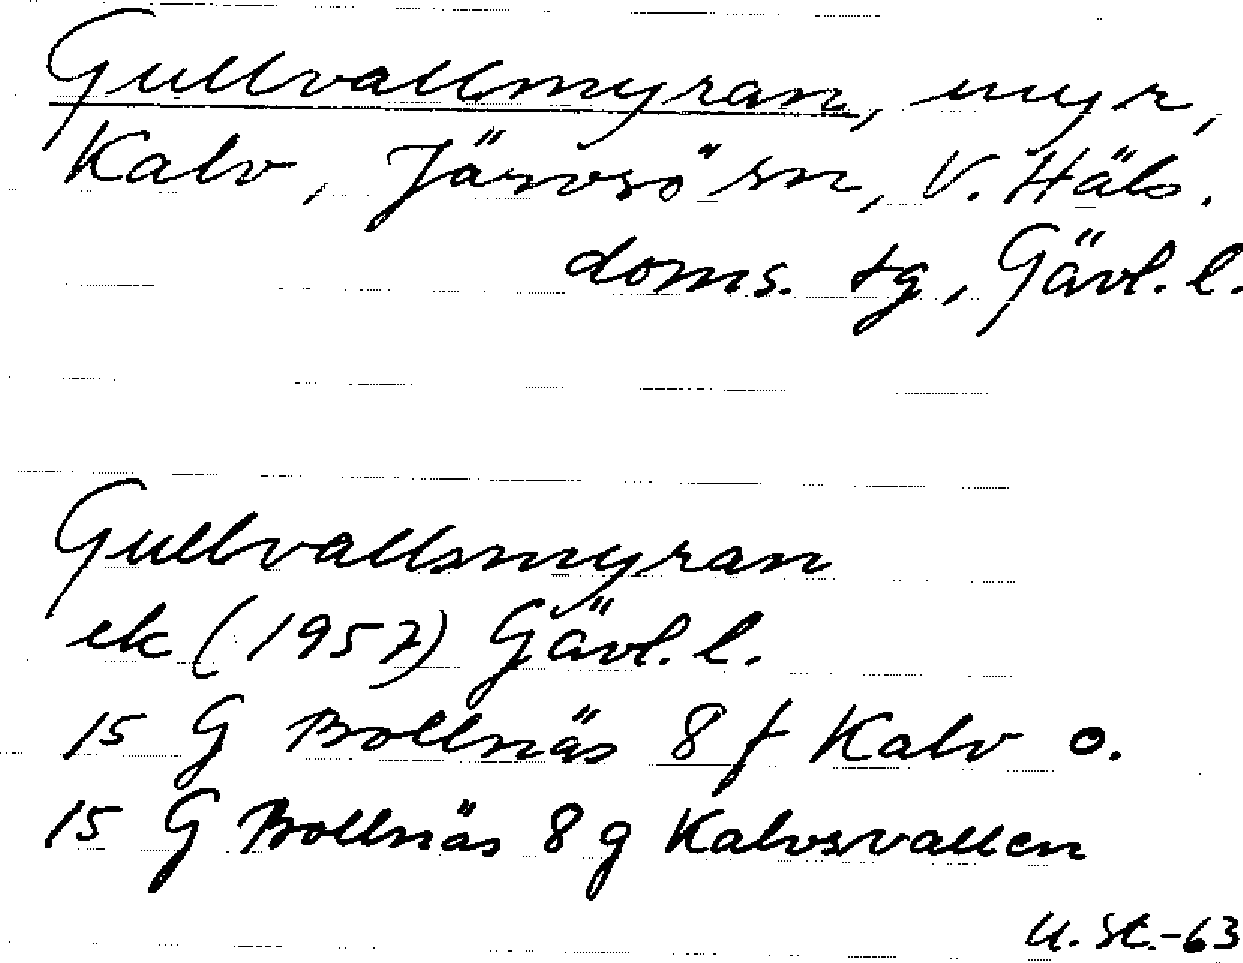 Gullvallmyran, myr,
Kalv, Järvsö sn, V. Häls.
doms. tg, Gävl. l.
Gullvallsmyran
ek (1957) Gävl. l.
15 G Bollnäs 8 f Kalv o.
15 G Bollnäs 8 g Kalvsvallen
U. St.-63